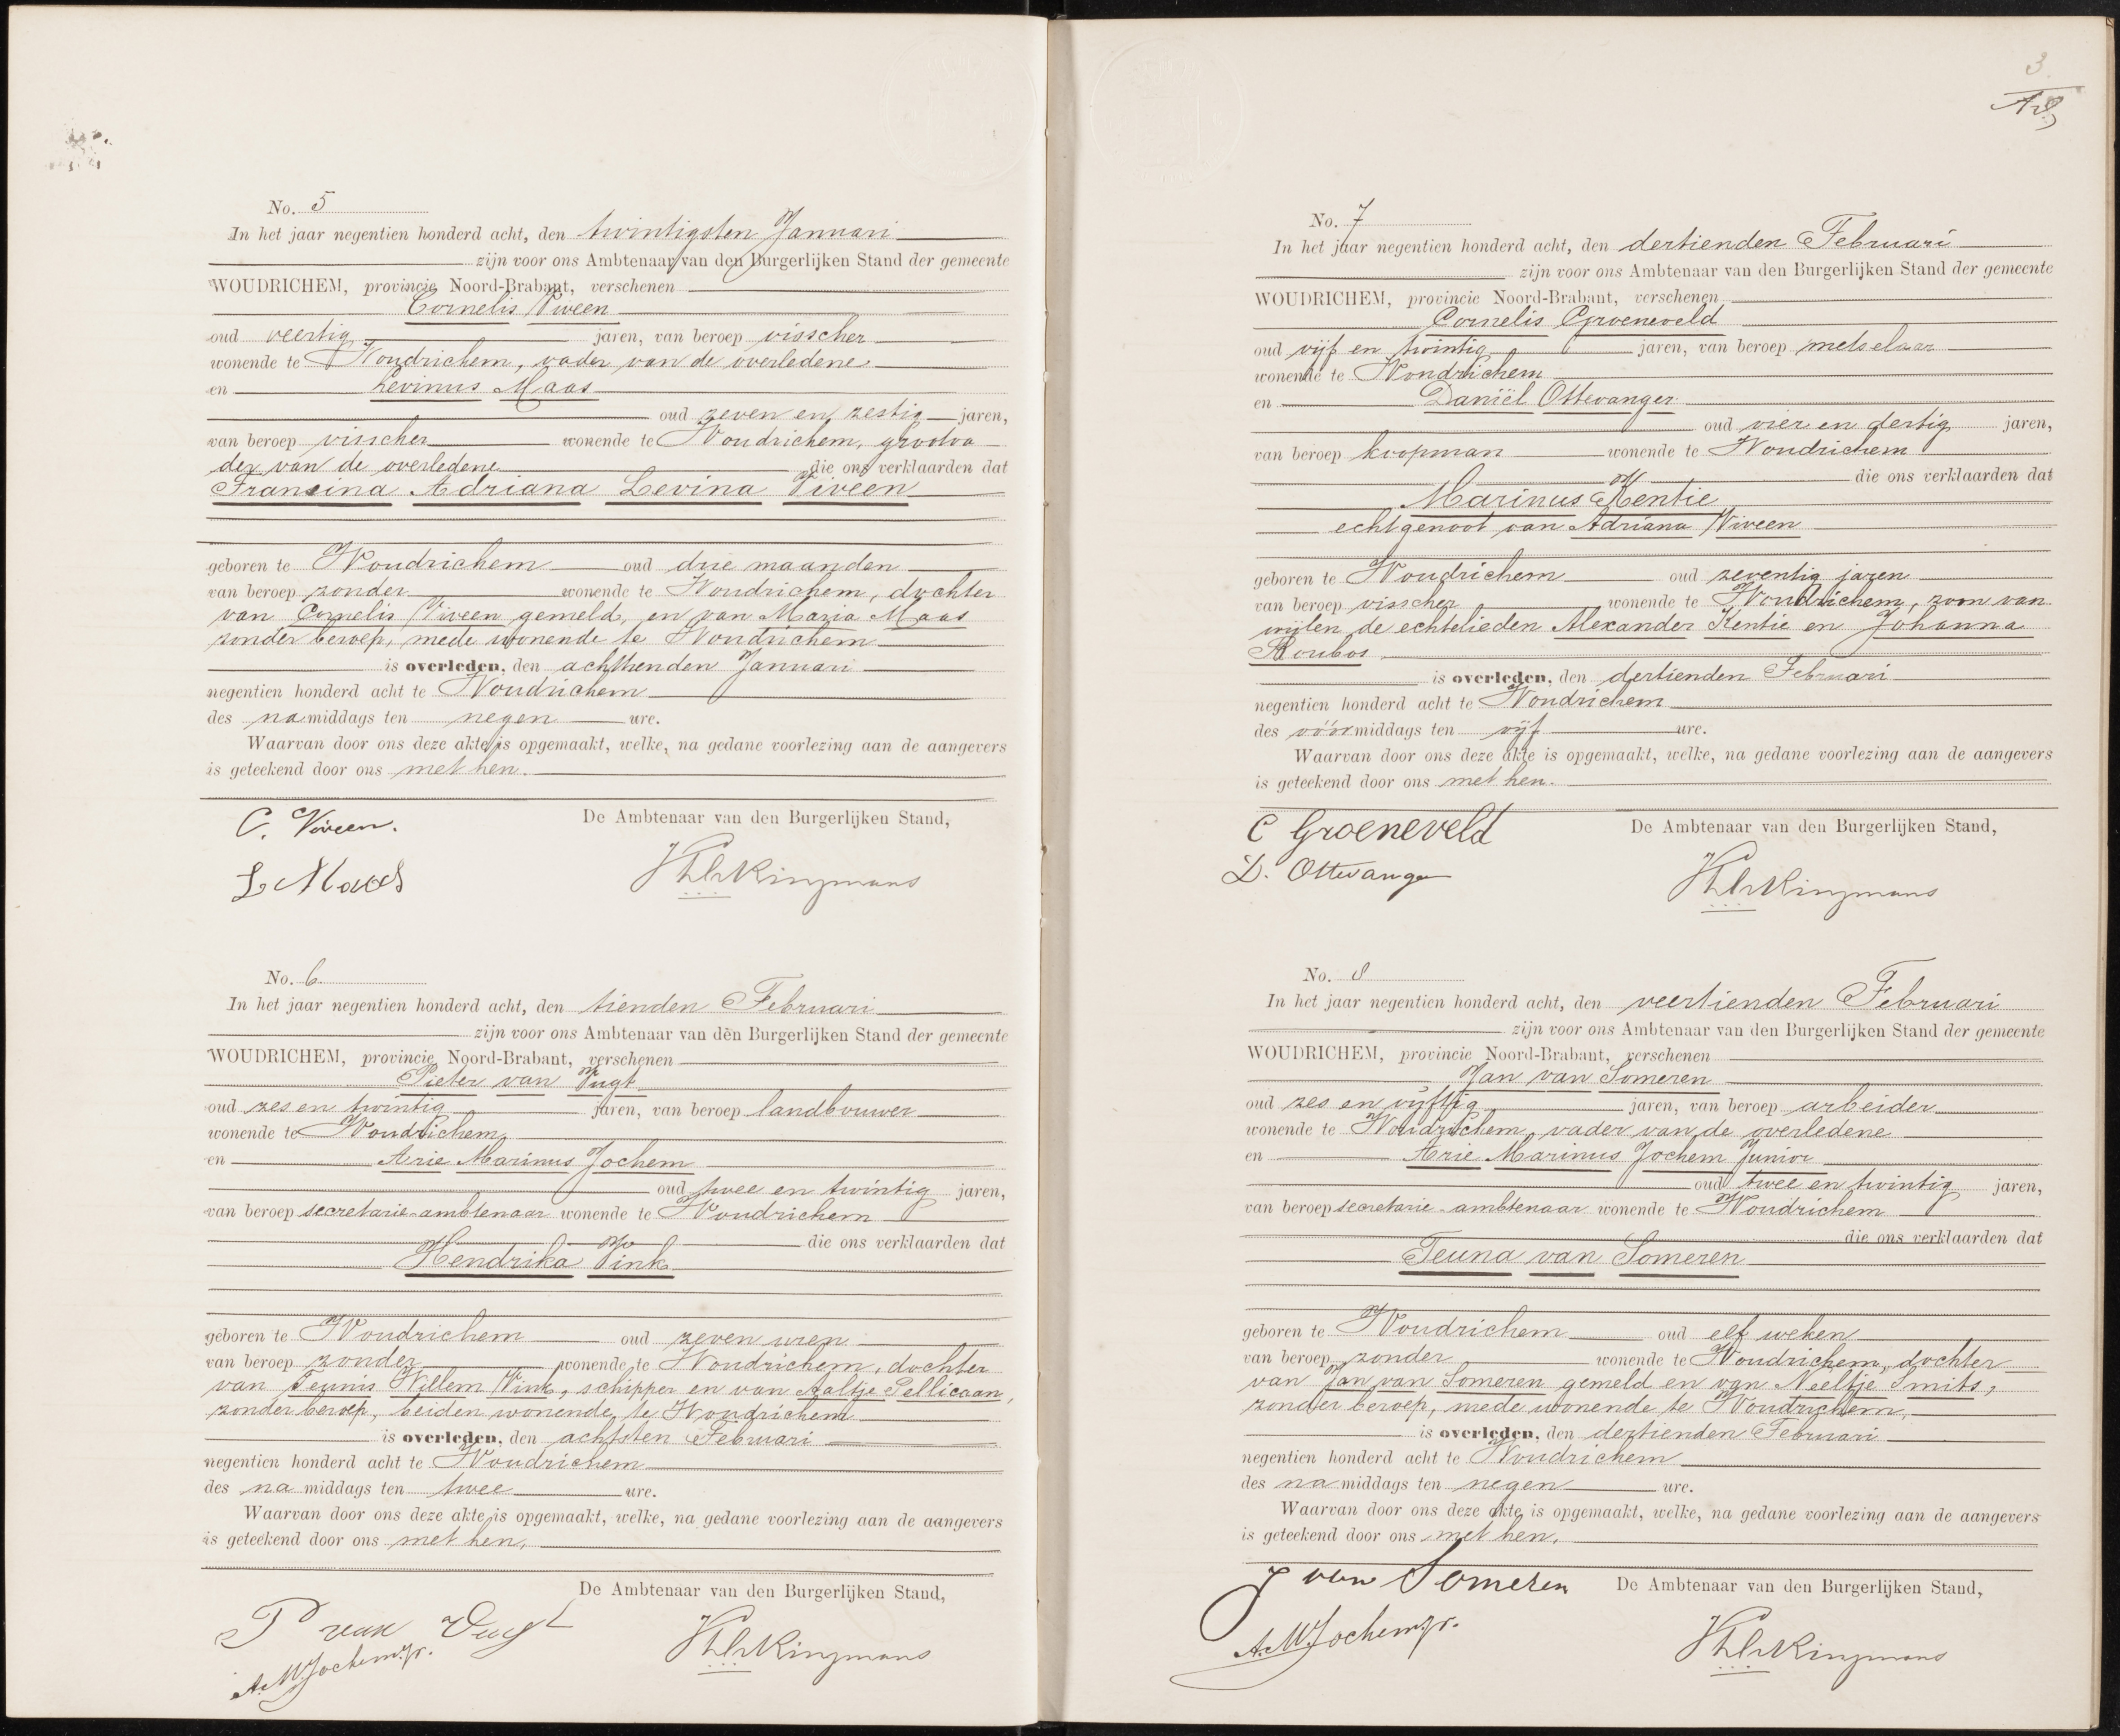 No. 5
In het jaar negentien honderd acht, den twintigsten Januari
zijn voor ons Ambtenaar van den Burgerlijken Stand der gemeente
WOUDRICHEM, provincie Noord-Brabant, verschenen
Cornelis Viveen
oud veertig jaren, van beroep visscher
wonende te Woudrichem, vader van de overledene
en Levinus Maas
oud zeven en zestig jaren,
van beroep visscher wonende te Woudrichem, grootva
der van de overledene die ons verklaarden dat
Fransina Adriana Levina Viveen
geboren te Woudrichem oud drie maanden
van beroep zonder wonende te Woudrichem, dochter
van Cornelis Viveen gemeld, en van Maria Maas
zonder beroep, mede wonende te Woudrichem
is overleden, den achttienden Januari
negentien honderd acht te Woudrichem
des namiddags ten negen ure.
Waarvan door ons deze akte is opgemaakt, welke, na gedane voorlezing aan de aangevers
is geteekend door ons met hen.
De Ambtenaar van den Burgerlijken Stand,
C. Viveen.
L. Maas
No. 6
In het jaar negentien honderd acht, den tienden Februari
zijn voor ons Ambtenaar van den Burgerlijken Stand der gemeente
WOUDRICHEM, provincie Noord-Brabant, verschenen
Pieter van Vugt
oud zes en twintig jaren, van beroep landbouwer
wonende te Woudrichem
en Arie Marinus Jochem
oud twee en twintig jaren,
van beroep secretarie-ambtenaar wonende te Woudrichem
die ons verklaarden dat
Hendrika Vink
geboren te Woudrichem oud zeven uren
van beroep zonder wonende te Woudrichem, dochter
van Teunis Willem Vink, schipper en van Aaltje Pellicaan,
zonder beroep, beiden wonende te Woudrichem
is overleden, den achtsten Februari
negentien honderd acht te Woudrichem
des na middags ten twee ure.
Waarvan door ons deze akte is opgemaakt, welke, na gedane voorlezing aan de aangevers
is geteekend door ons met hen.
De Ambtenaar van den Burgerlijken Stand,
P van Vugt
A. M. Jochem jr.
3.
No. 7
In het jaar negentien honderd acht, den dertienden Februari
zijn voor ons Ambtenaar van den Burgerlijken Stand der gemeente
WOUDRICHEM, provincie Noord-Brabant, verschenen
Cornelis Groeneveld
oud vijf en twintig jaren, van beroep metselaar
wonende te Woudrichem
en Daniël Ottevanger
oud vier en dertig jaren,
van beroep koopman wonende te Woudrichem
die ons verklaarden dat
Marinus Kentie
echtgenoot van Adriana Viveen
geboren te Woudrichem oud zeventig jaren
van beroep visscher wonende te Woudrichem, zoon van
wijlen de echtelieden Alexander Kentie en Johanna
Roubos
is overleden, den dertienden Februari
negentien honderd acht te Woudrichem
des vóórmiddags ten vijf ure.
Waarvan door ons deze akte is opgemaakt, welke, na gedane voorlezing aan de aangevers
is geteekend door ons met hen.
De Ambtenaar van den Burgerlijken Stand,
C Groeneveld
D. Ottevanger
No. 8
In het jaar negentien honderd acht, den veertienden Februari
zijn voor ons Ambtenaar van den Burgerlijken Stand der gemeente
WOUDRICHEM, provincie Noord-Brabant, verschenen
Jan van Someren
oud zes en vijftig jaren, van beroep arbeider
wonende te Woudrichem, vader van de overledene
en Arie Marinus Jochem Junior
oud twee en twintig jaren,
van beroep secretarie-ambtenaar wonende te Woudrichem
die ons verklaarden dat
Teuna van Someren
geboren te Woudrichem oud elf weken
van beroep zonder wonende te Woudrichem, dochter
van Jan van Someren gemeld en van Neeltje Smits,
zonder beroep, mede wonende te Woudrichem,
is overleden, den dertienden Februari
negentien honderd acht te Woudrichem
des na middags ten negen ure.
Waarvan door ons deze akte is opgemaakt, welke, na gedane voorlezing aan de aangevers
is geteekend door ons met hen.
De Ambtenaar van den Burgerlijken Stand,
J van Someren
A. M. Jochem jr.